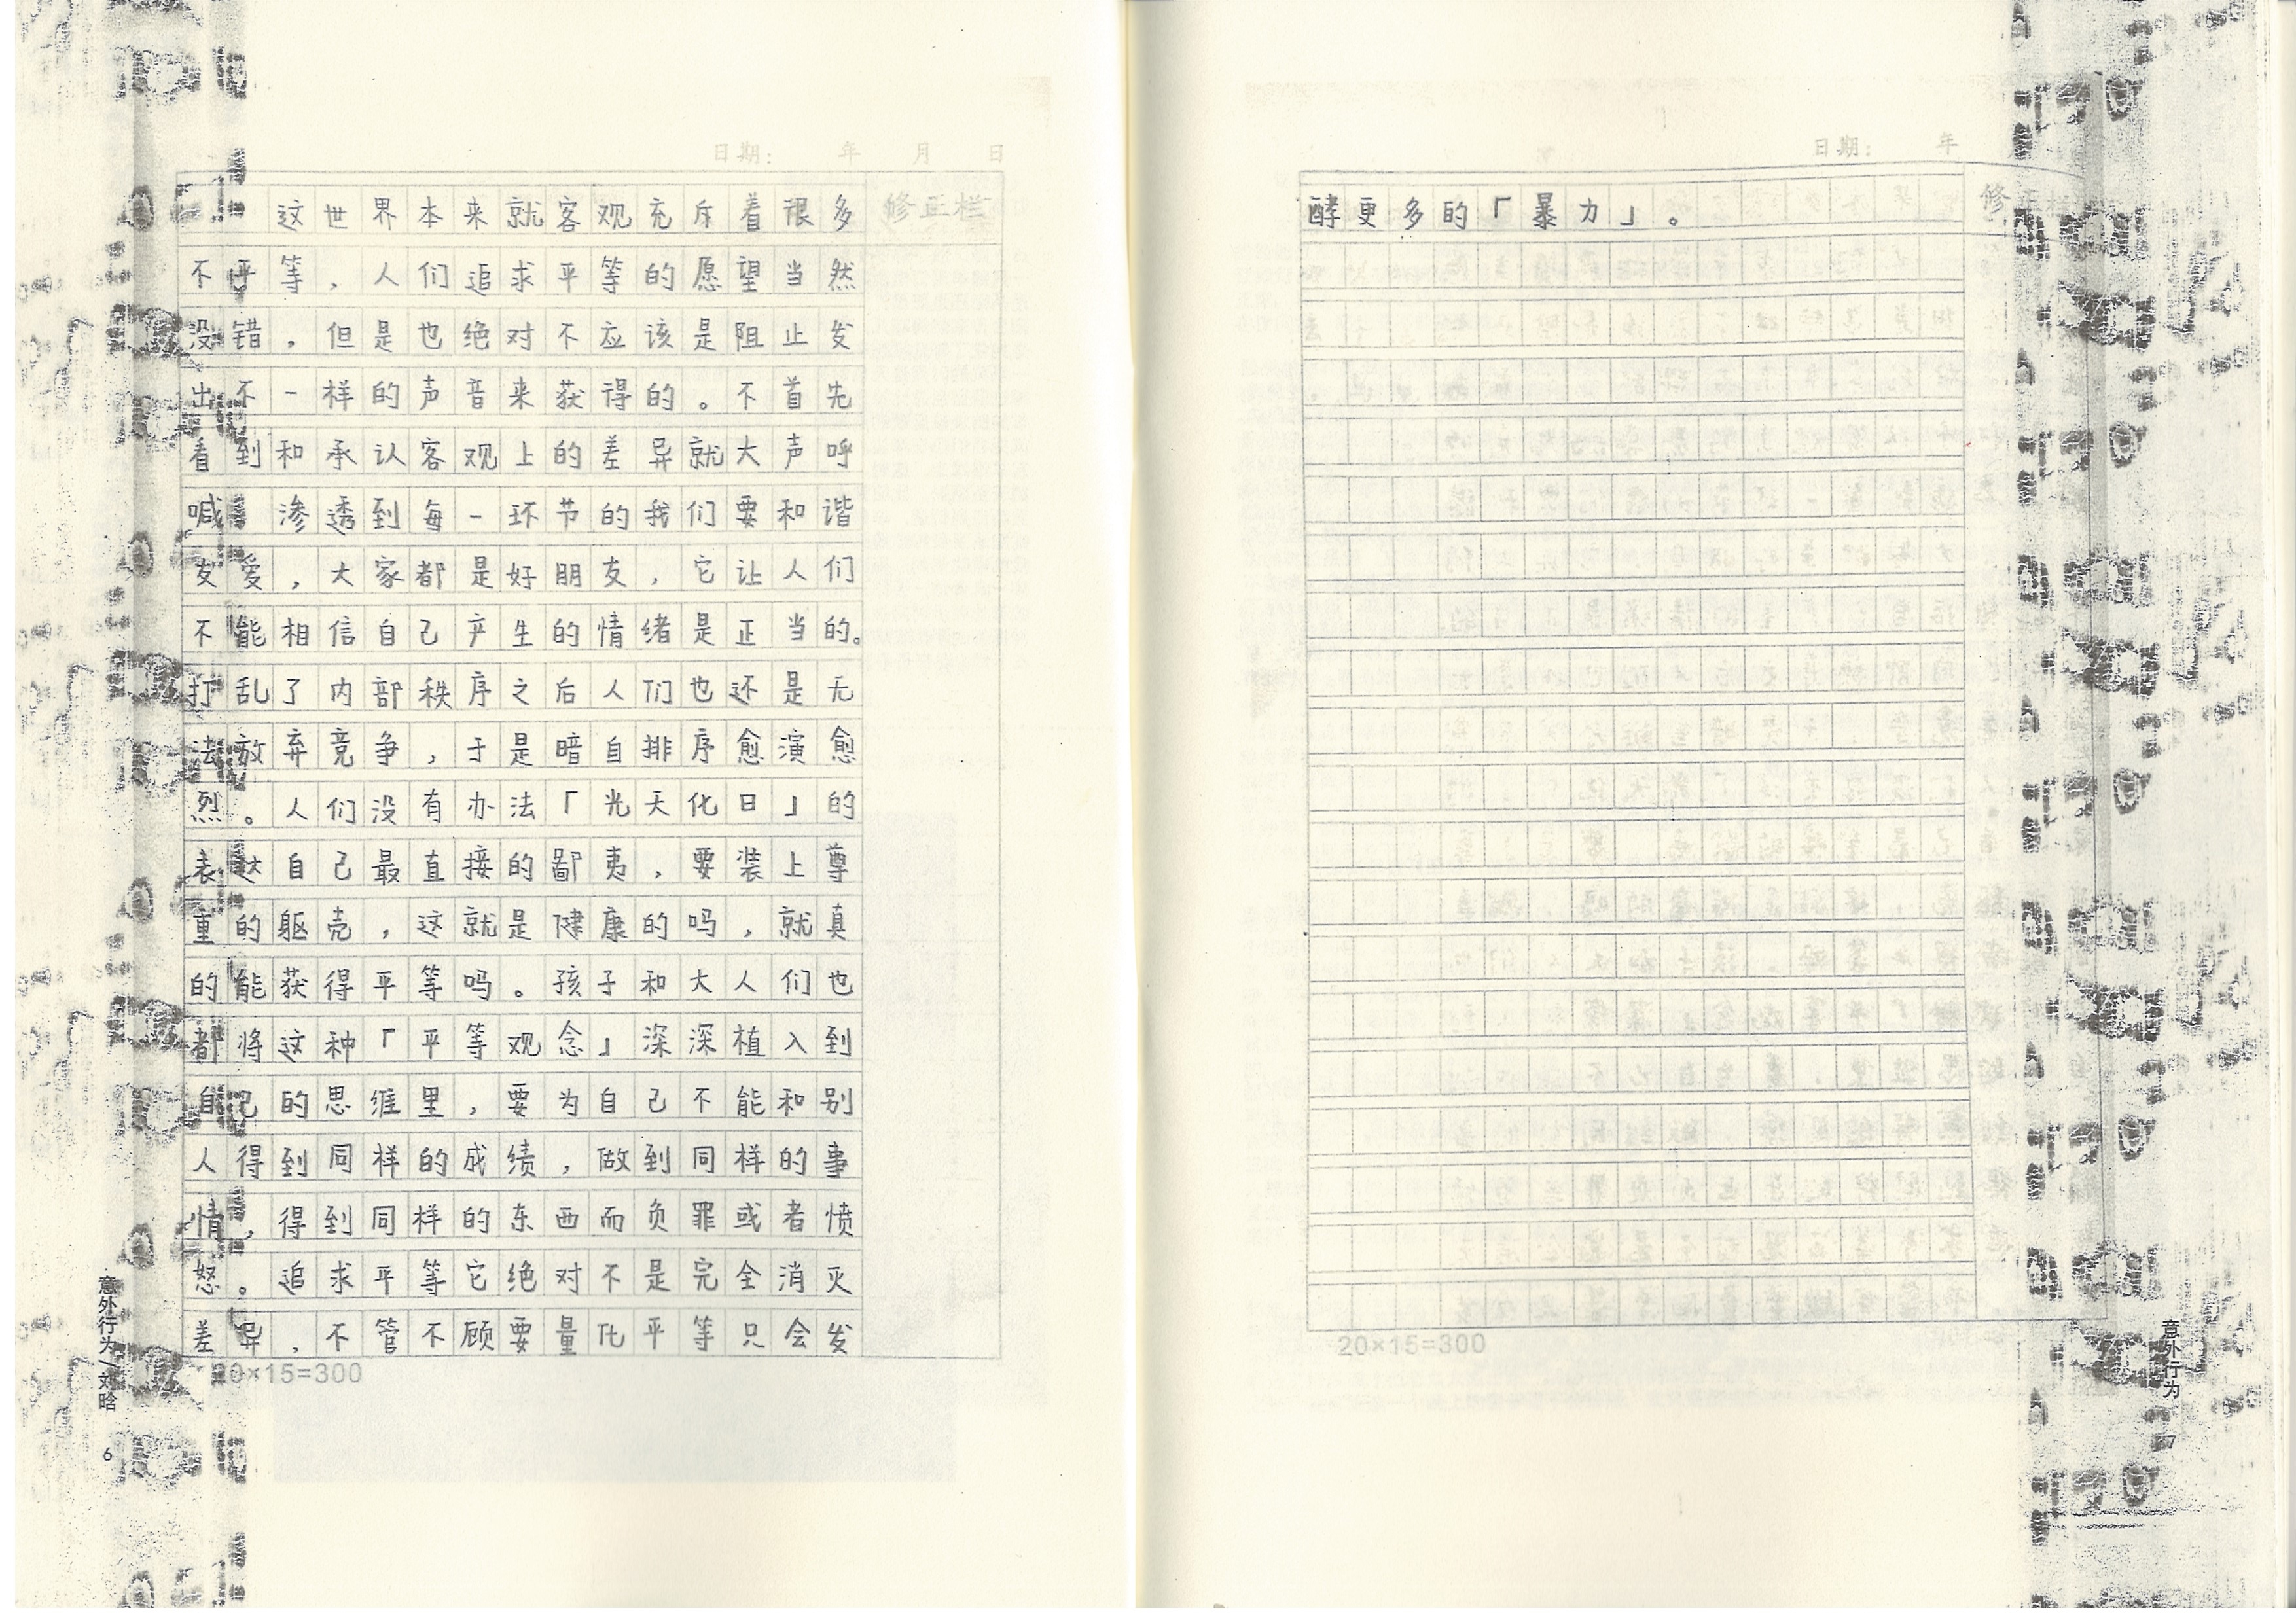 日期： 年 月 日
修正栏
这世界本来就客观充斥着很多
不平等，人们追求平等的愿望当然
没错，但是也绝对不应该是阻止发
出不一样的声音来获得的。不首先
看到和承认客观上的差异就大声呼
喊 渗透到每一环节的我们要和谐
友爱，大家都是好朋友，它让人们
不能相信自己产生的情绪是正当的。
打乱了内部秩序之后人们也还是无
法放弃竞争，于是暗自排序愈演愈
烈。人们没有办法「光天化日」的
表达自己最直接的鄙夷，要装上尊
重的躯壳，这就是健康的吗，就真
的能获得平等吗。孩子和大人们也
都将这种「平等观念」深深植入到
自己的思维里，要为自己不能和别
人得到同样的成绩，做到同样的事
情，得到同样的东西而负罪或者愤
怒。追求平等它绝对不是完全消灭
差异，不管不顾要量化平等只会发
20×15=300
意外行为/刘晗
6
日期： 年
修正栏
酵更多的「暴力」。
20×15=300
意外行为
7